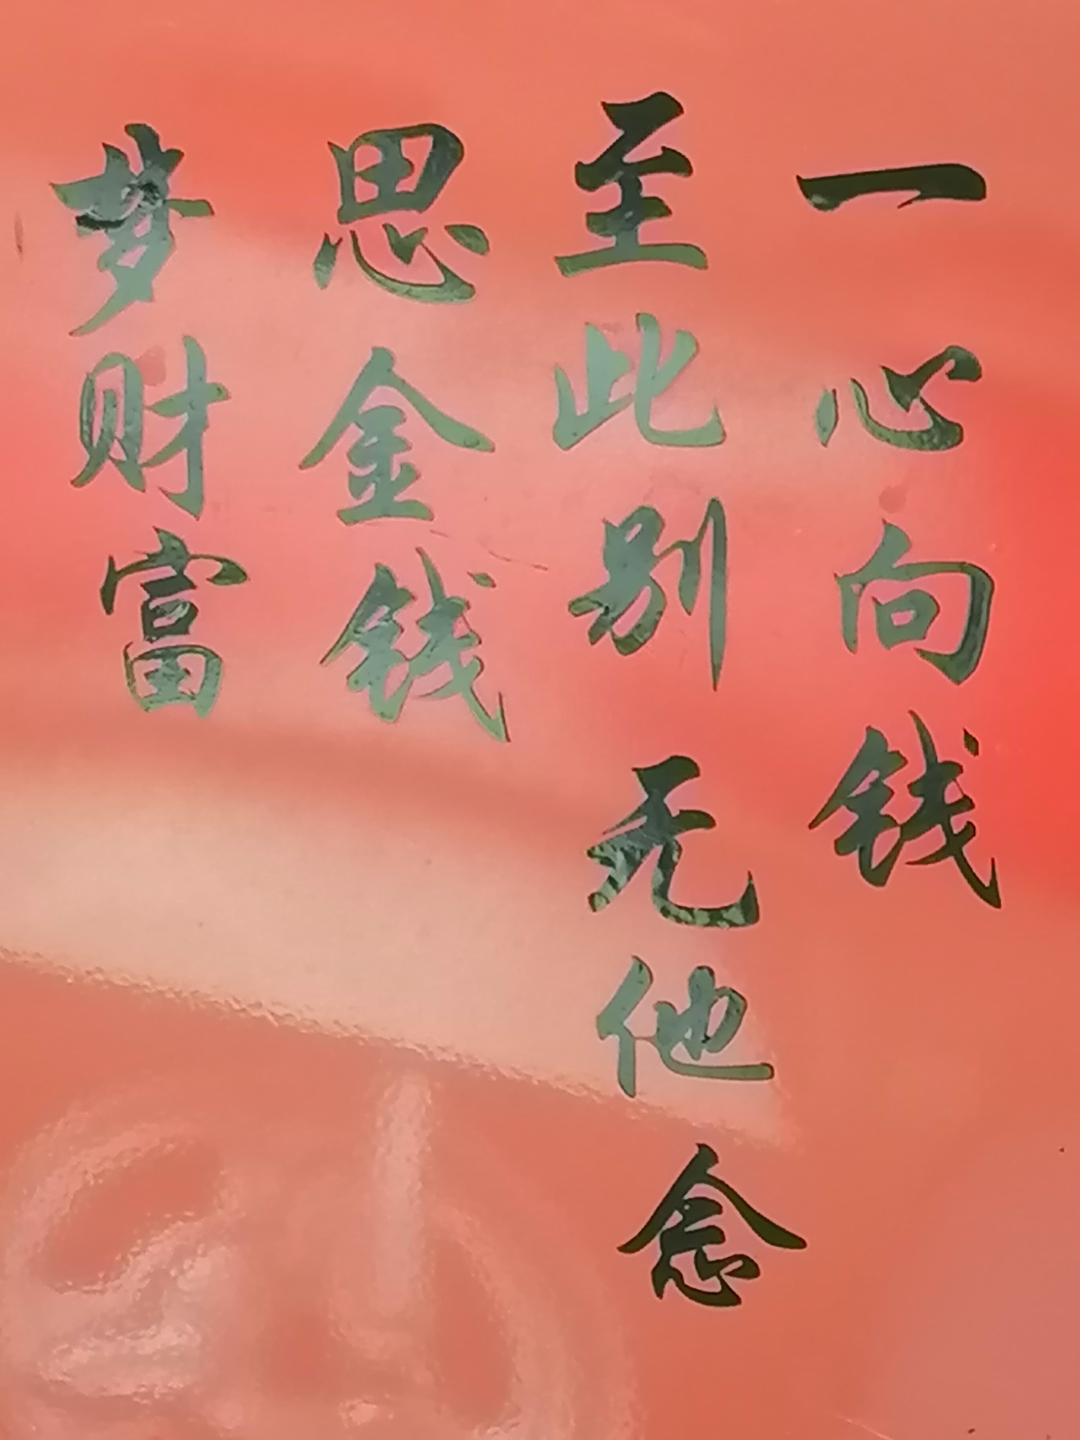 一心向钱
至此别无他念
思金钱
梦财富